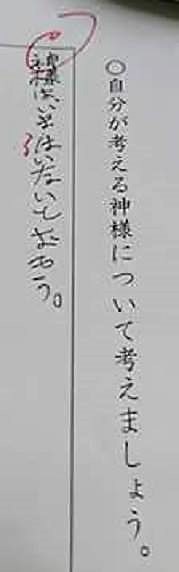 ◎自分が考える神様について考えましょう。
神様は、いまはいないとおもう。